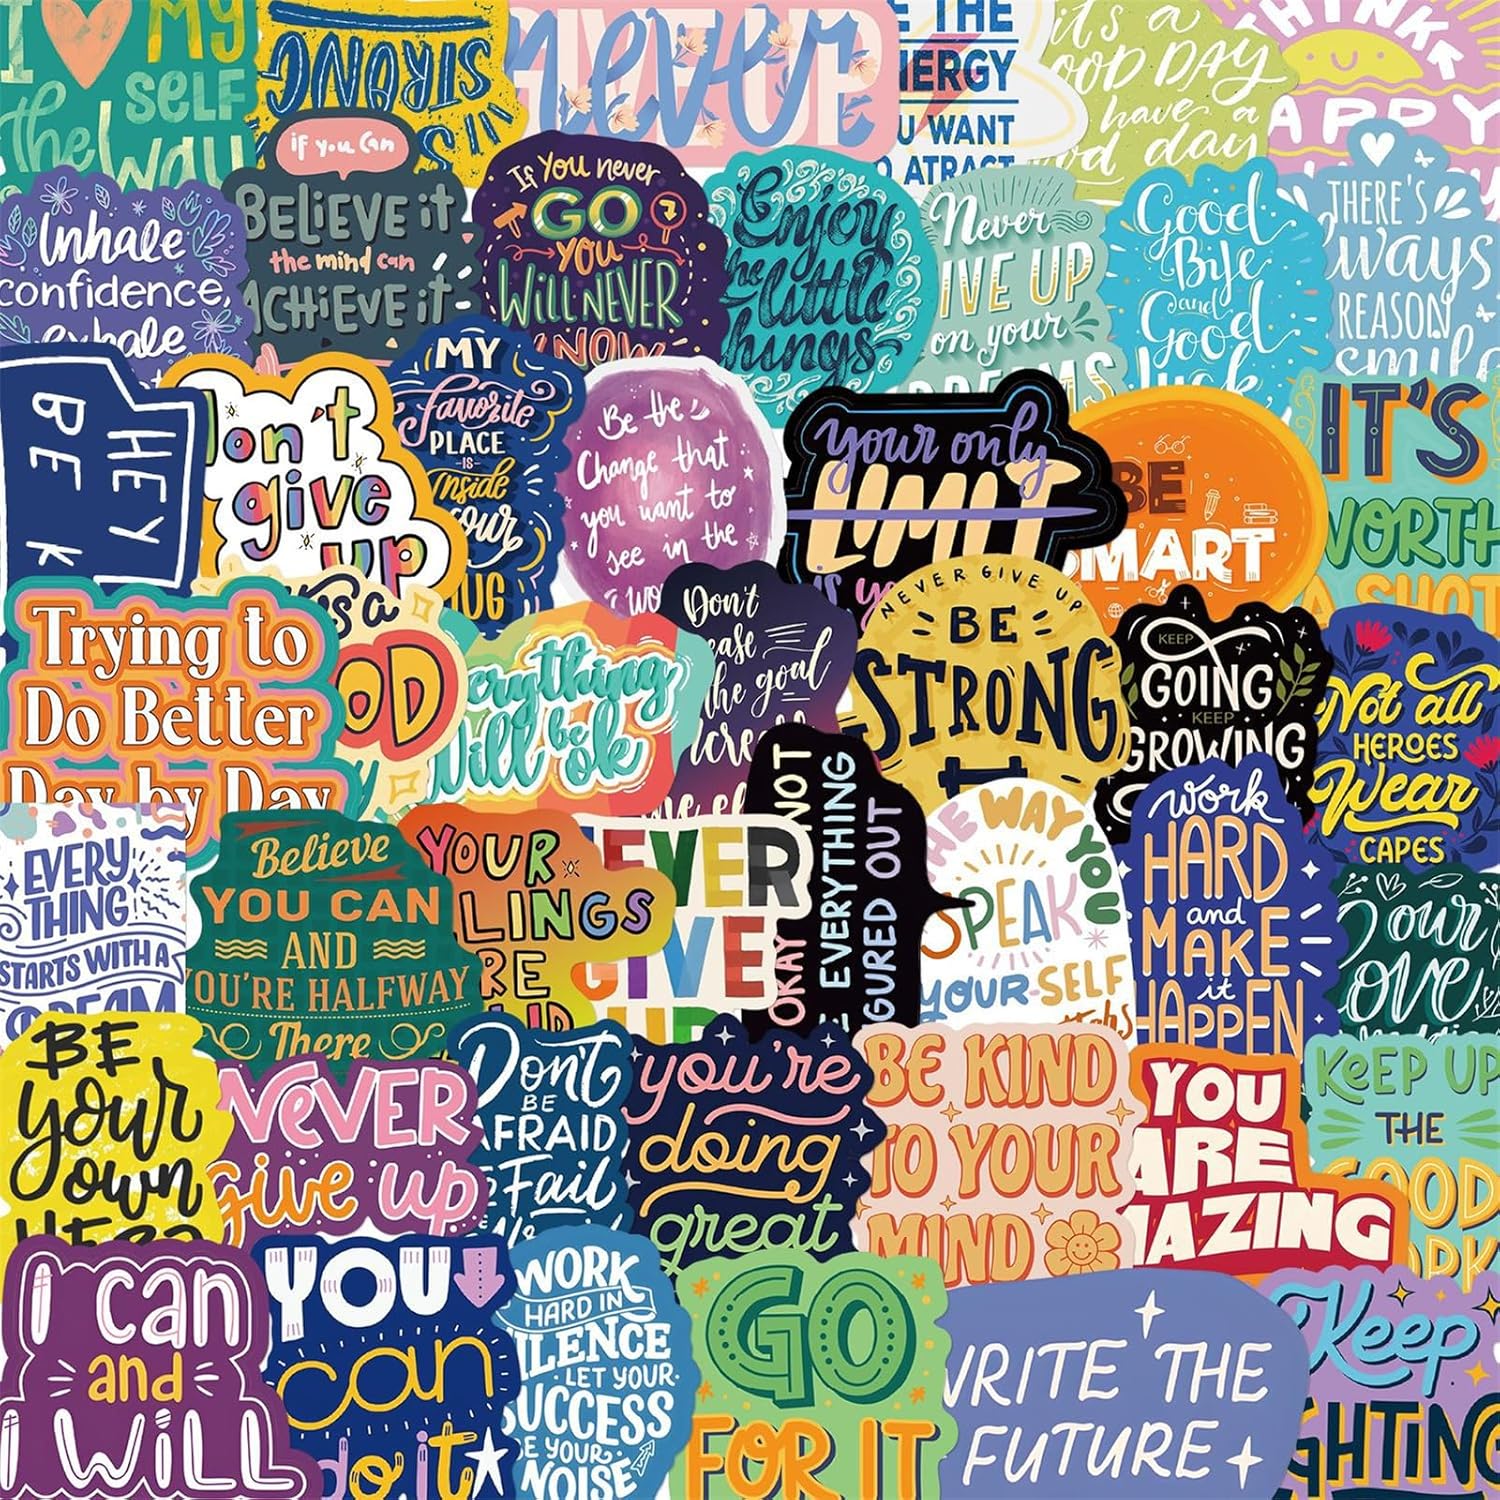 I MY
SELF
the way
IT'S
STRONG
GIVE UP
never
THE
ENERGY
WANT
ATRACT
it's a
GOOD DAY
have a
good day
THINK
HAPPY
Inhale
confidence,
exhale
if you can
BELIEVE it
the mind can
ACHIEVE it
If you never
GO
you
WILL NEVER
KNOW
Enjoy
the little
things
Never
GIVE UP
on your
DREAMS
Good
Bye
and
Good
luck
THERE'S
always
REASON
smile
HEY
BE K
Don't
give
up
MY
favorite
PLACE
IS
inside
your
HUG
Be the
Change that
you want to
see in the
wo
your only
LIMIT
is yo
BE
SMART
IT'S
WORTH
A SHOT
Trying to
Do Better
Day by Day
it's a
GOOD
everything
will be
ok
Don't
the goal
NEVER GIVE UP
BE
STRONG
KEEP
GOING
KEEP
GROWING
Not all
HEROES
Wear
CAPES
EVERY
THING
STARTS WITH A
DREAM
Believe
YOU CAN
AND
YOU'RE HALFWAY
There
YOUR
FEELINGS
ARE
VALID
NEVER
GIVE
UP
OKAY NOT
EVERYTHING
FIGURED OUT
THE WAY YOU
SPEAK
YOUR-SELF
work
HARD
and
MAKE
it
HAPPEN
your
love
BE
your
own
HERO
NEVER
give up
DON'T
BE
AFRAID
Fail
you're
doing
great
BE KIND
TO YOUR
MIND
YOU
ARE
AMAZING
KEEP UP
THE
GOOD
WORK
I can
and
I WILL
YOU
can
do it
WORK
HARD IN
SILENCE
LET YOUR
SUCCESS
BE YOUR
NOISE
GO
FOR IT
WRITE THE
FUTURE
Keep
FIGHTING